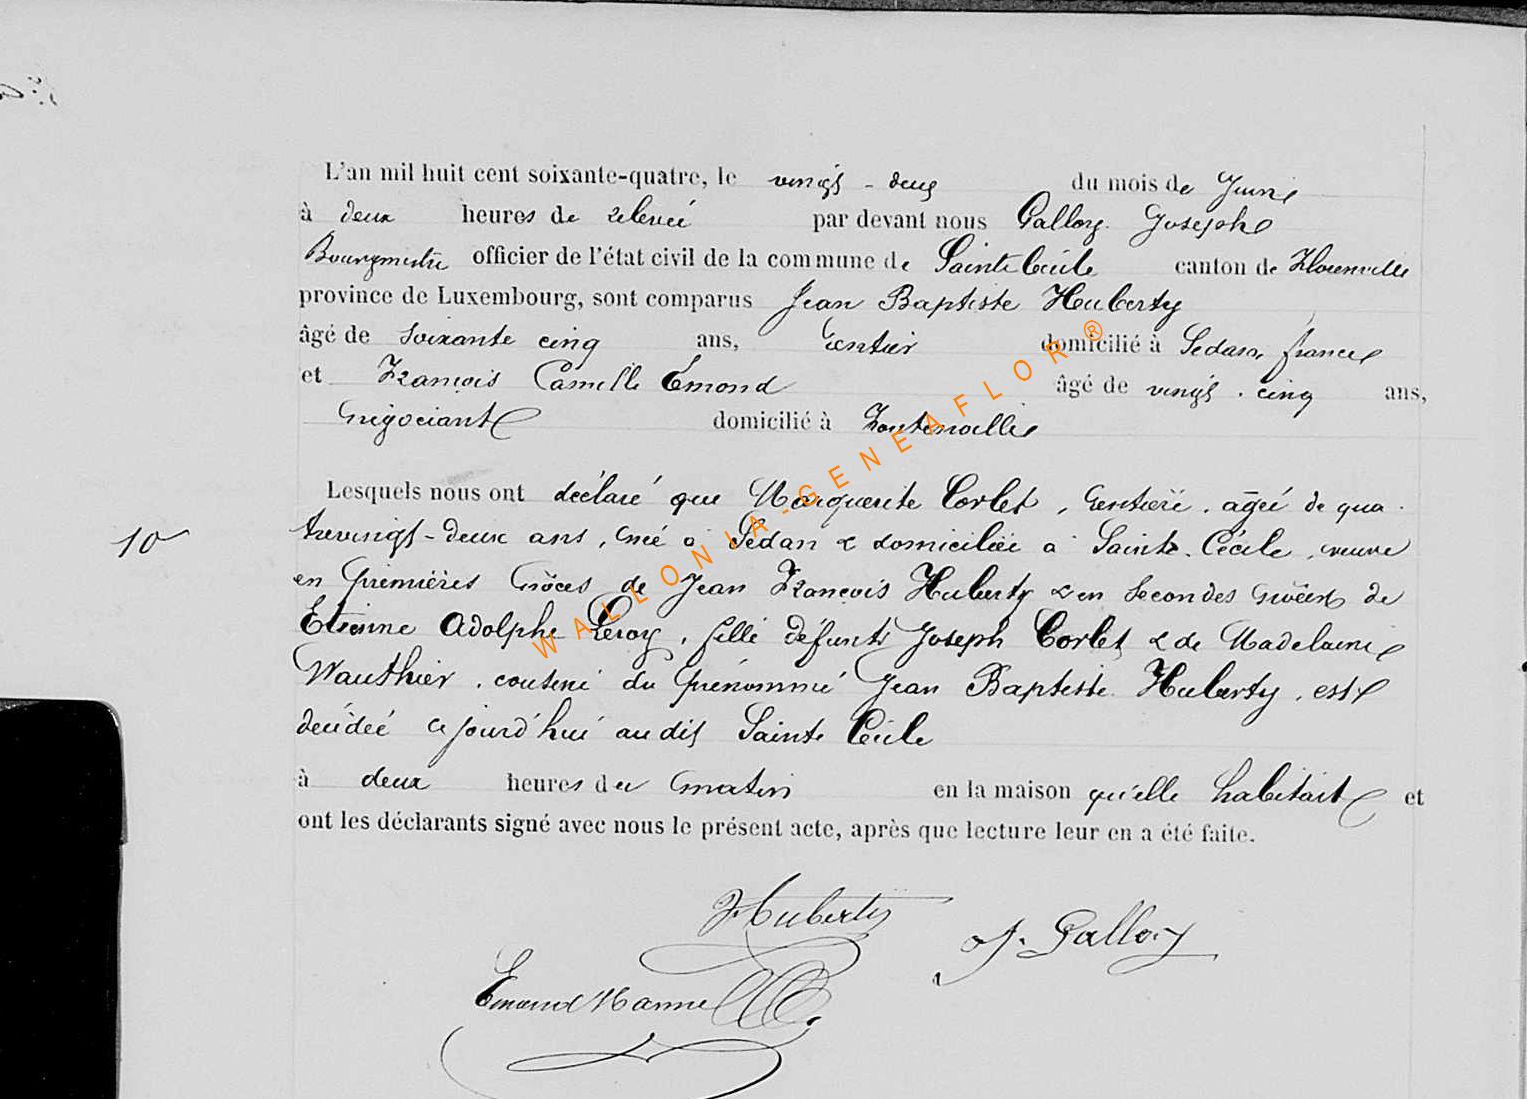 L'an mil huit cent soixante-quatre, le vingt-deux du mois de Juin
à deux heures de relevée par devant nous Pallory Joseph
Bourgmestre officier de l'état civil de la commune de Sainte Cécile canton de Florenville
province de Luxembourg, sont comparus Jean Baptiste Huberty
âgé de soixante cinq ans, rentier domicilié à Sedan, france
et François Camille Emond âgé de vingt-cinq ans,
Négociant domicilié à Fontenoille
Lesquels nous ont déclaré que Marguerite Corlet, rentière, âgée de qua
10
trevingt-deux ans, née à Sedan & domiciliée à Sainte-Cécile, veuve
en premières nôces de Jean François Huberty & en secondes nôces de
Etienne Adolphe Leroy, fille défunts Joseph Corlet & de Madelaine
Wauthier, cousine du prénommé Jean Baptiste Huberty, est
décédée cejourd'hui audit Sainte Cécile
à deux heures du matin en la maison qu'elle habitait et
ont les déclarants signé avec nous le présent acte, après que lecture leur en a été faite.
Huberty
J. Pallory
Emond
WALLONIA-GENEAFLOR®